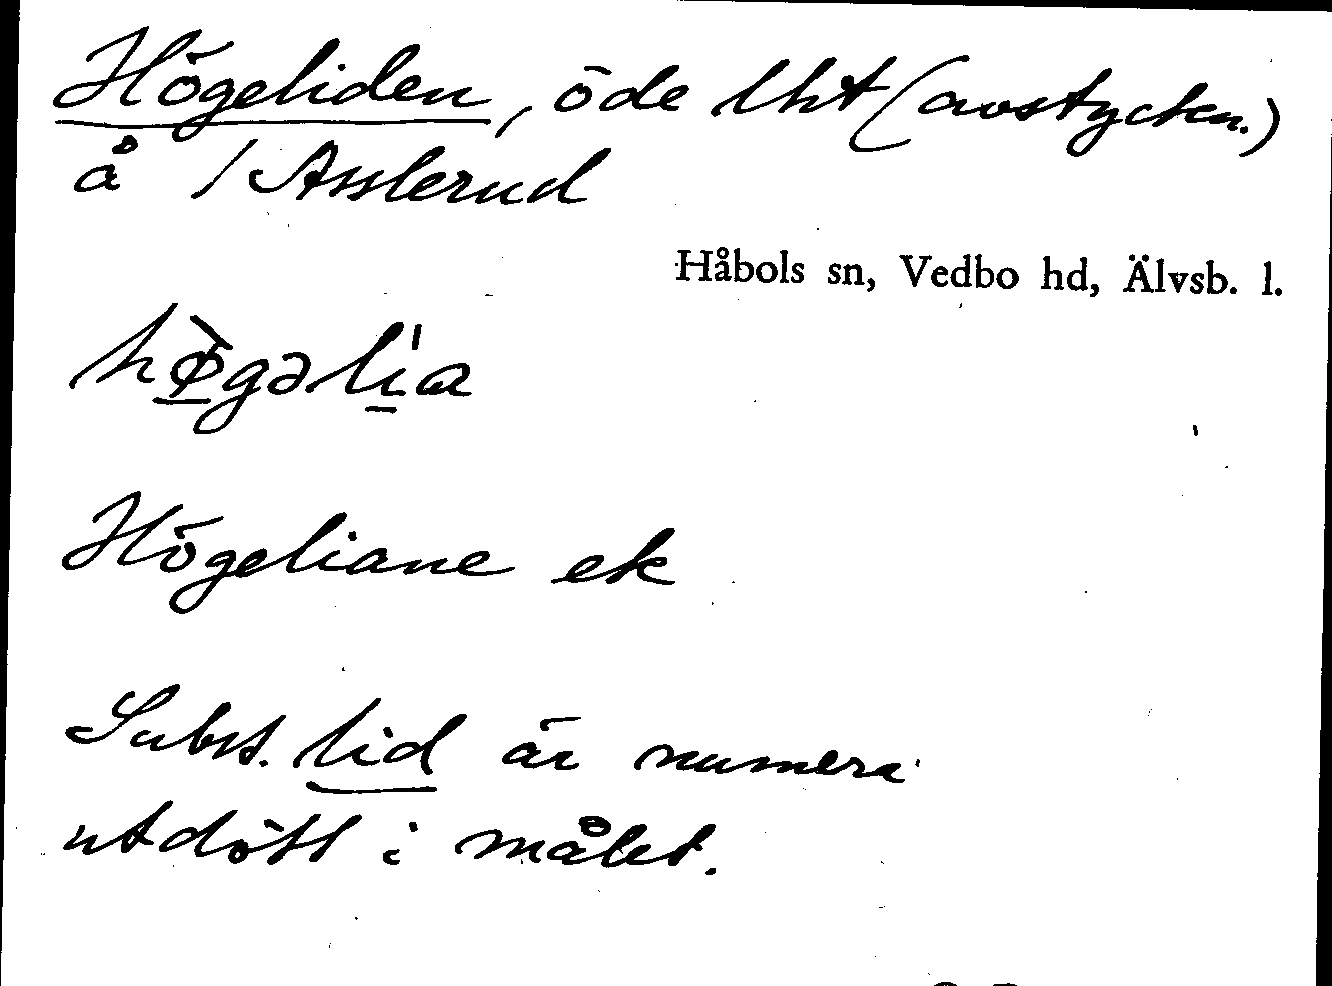 Högeliden, öde lht (avstyckn.)
å 1 Asslerud
Håbols sn, Vedbo hd, Älvsb. l.
hø̀gəli'a
Högeliane ek
Subst. lid är numera
utdött i målet.